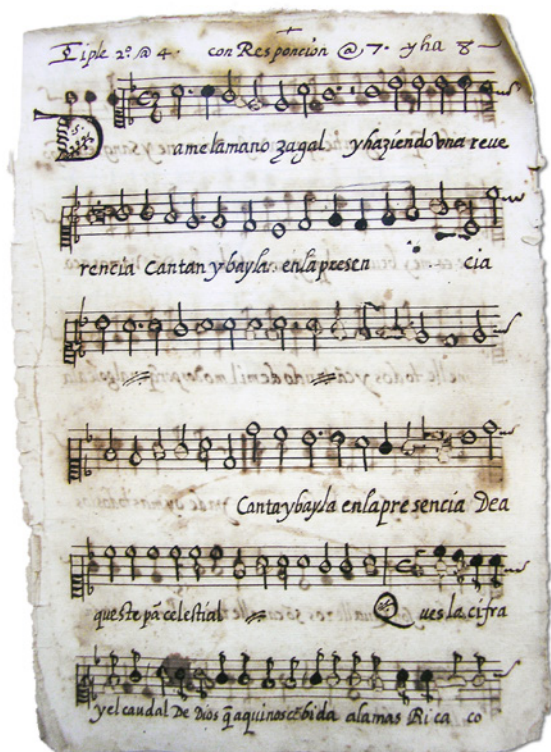 Tiple 2º. @ 4. con Responcion @ 7. y ha 8
Dame la mano zagal y haziendo vna reve
rencia Cantan y bayla. en la presen cia
Canta y bayla en la presencia De a
queste pã celestial Q ues la cifra
y el caudal De Dios q̃ aqui nos cõbida a la mas Rica co